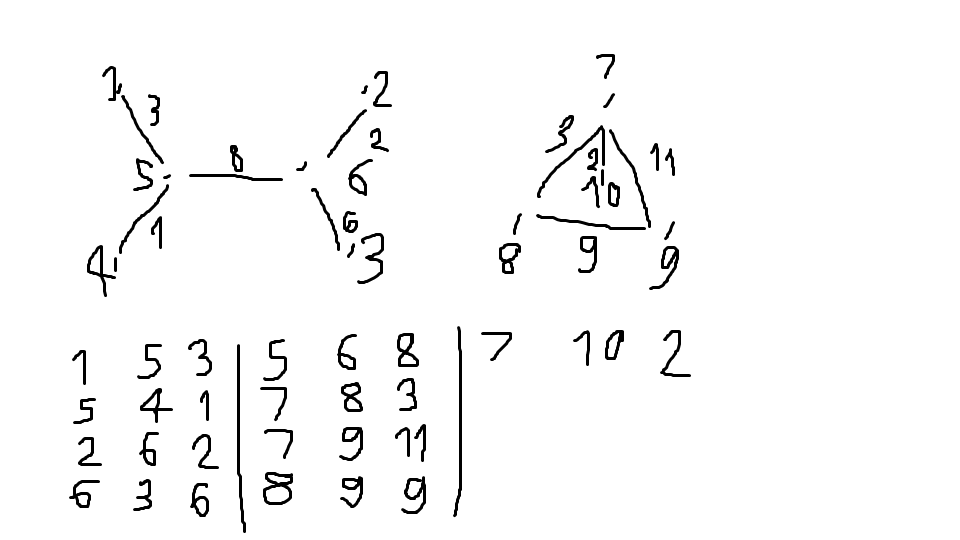 1 3 8 2 2
5 6
4 1 6 3
7
3 2 11
10
8 9 9
1 5 3 | 5 6 8 | 7 10 2
5 4 1 | 7 8 3 |
2 6 2 | 7 9 11 |
6 3 6 | 8 9 9 |